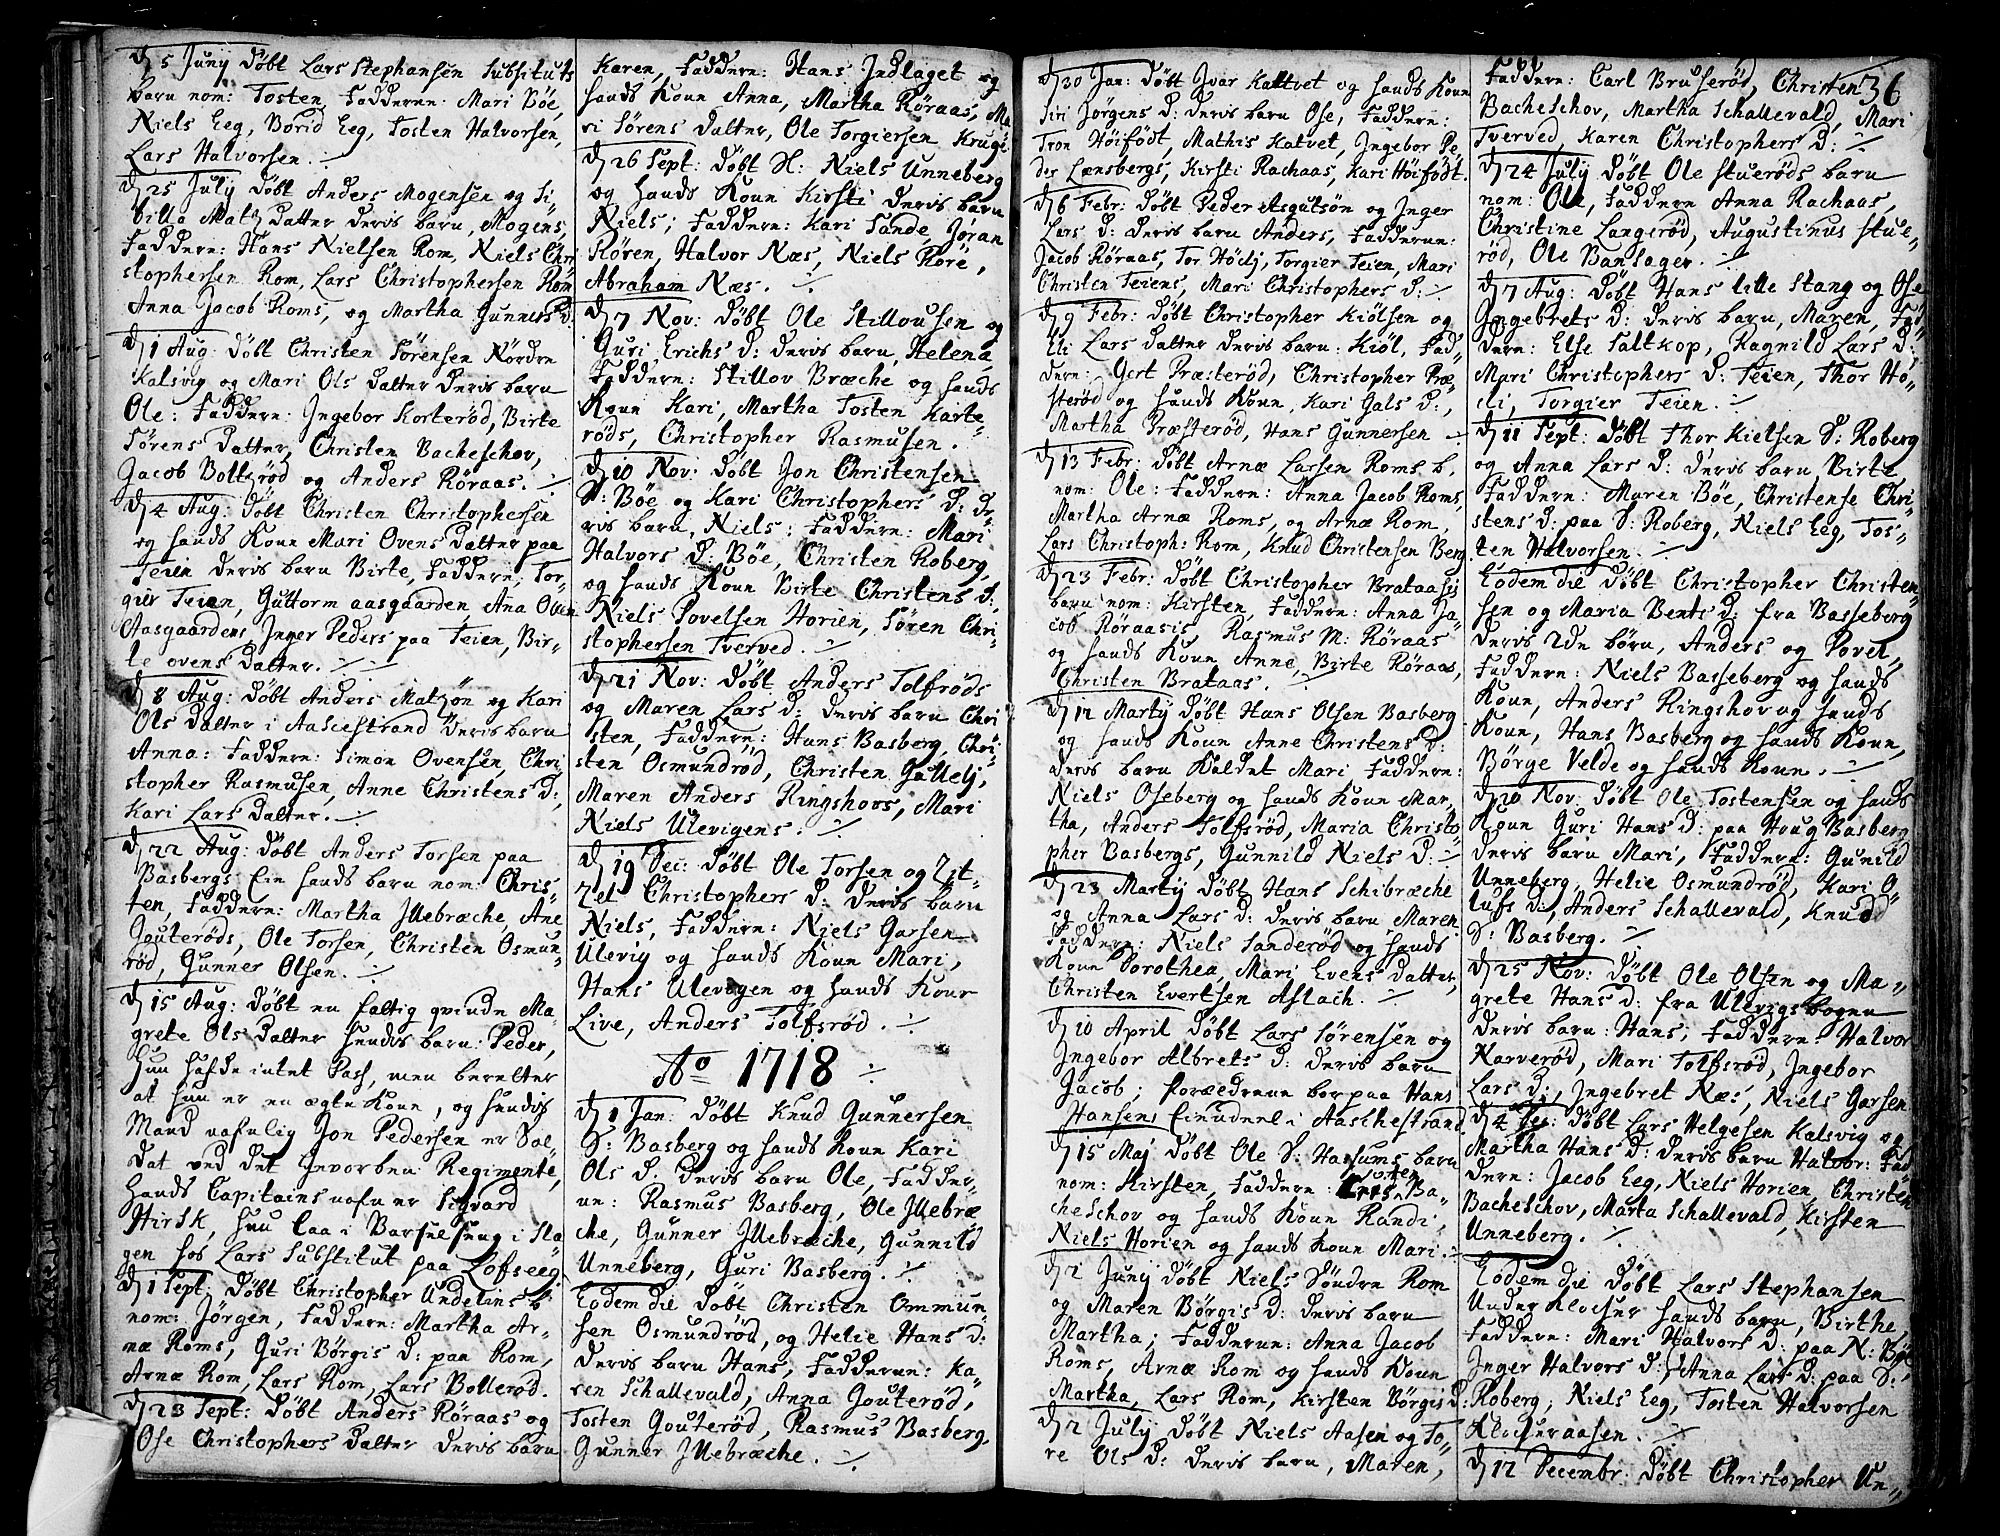 d 5 Junÿ Døbt Lars Stephansen Substituts
barn nom: Tosten Fadderne: Mari Bøe,
Niels Eeg, Borid Eeg, Tosten Halvorsen,
Lars Halvorsen. ./.
d 25 July Døbt Anders Mogensen og Si-
billa Matz datter deris barn, Mogens,
Faddern: Hans Nielsen Rom, Niels Chri
stophersen Rom, Lars Christophersen Rom
Anna Jacob Roms, og Martha Gunners D.
d 1 Aug: Døbt Christen Sørensen Nordre
Kalsvig og Mari Ols datter deris barn
Ole: Faddern: Ingebor Korterød, Birte
Sørens datter, Christen Bacheschov,
Jacob Bollerød og Anders Røraas. ./.
d 4 Aug: Døbt Christen Christophersen
og hands Konn Mari Ovens datter paa
Teien deris barn Birte, Faddern, Tor-
gier Teien, Guttorm aasgaarden Ana Oven
Aasgaardens, Inger Peders paa Teien, Bir-
te ovens datter. ./.
d 8 Aug: Døbt Anders Matzøn og Kari
Ols datter i Aaschestrand deris barn
Anna: Faddern: Simon Ovensen, Chri-
stopher Rasmusen, Anne Christens D:,
Kari Lars datter. ./.
d 22 Aug: Døbt Anders Torsen paa
Basbergs Ein hands barn nom: Chris-
ten, Faddern: Martha Illebræche, Ane
Gouterøds, Ole Torsen, Christen Osmun-
rød, Gunner Olsen. ./.
d 15 Aug: Døbt en fattig qvinde Ma-
grete Ols datter hendis barn: Peder,
hun hafde intet Pass, men berettet
at hun er en ægte Konn, og hendis
Mand nafnlig Jon Pedersen er Sol-
dat ved det Gevorbne Regimente,
hands Capitains nafn er Sigvard
Hirsk, hun laa i Barselseng i Sla-
gen hos Lars Substitut paa Lofseeg
d 1 Sept: Døbt Christopher Undelins b
nom: Jørgen, Faddern: Martha Ar-
næ Roms, Guri Børgis D: paa Rom,
Arnæ Rom, Lars Rom, Lars Bollerød.
d 23 Sept: Døbt Anders Røraas og
Ose Christophers datter deris barn
Karen, Faddern: Hans Indlaget og
hands Konn Anna, Martha Røraas, Ma
ri Sørens datter, Ole Torgiersen Kruge
d 26 Sept: Døbt H: Niels Unneberg
og hands Konn Kirsti deris barn
Niels; Faddern: Kari Sande, Joran
Røren, Halvor Næs, Niels Røre,
Abraham Næs. ./.
d 7 Nov: Døbt Ole Stillousen og
Guri Erichs D: deris barn, Helena,
Faddern: Stillov Bræche og hands
Konn Kari, Martha Tosten Karte-
røds, Christopher Rasmusen.
d 10 Nov: Døbt Jon Christensen
S: Bøe og Kari Christophers D: de-
ris barn, Niels: Faddern: Mari
Halvors D: Bøe, Christen Roberg,
og hands Konn Birte Christens D:
Niels Povelsen Horien, Søren Chri-
stophersen Tverved. ./.
d 21 Nov: Døbt Anders Tolfrøds
og Maren Lars D: deris barn Chri-
sten, Faddern: Hans Basberg, Chri-
sten Osmundrød, Christen Gallelj,
Maren Anders Ringshovs, Mari
Niels Ulevigens. ./.
d 19 Dec: Døbt Ole Torsen og Zit-
zel Christophers D: deris barn
Niels, Faddern: Niels Garsen
Ulevig og hands Konn Mari,
Hans Ulevigen og hands Konn
Live, Anders Tolfsrød. ./.
Ao 1718 ./.
d 1 Jan: Døbt Knud Gunnersen
S: Basberg og hands Konn Kari
Ols D: deris barn Ole, Fadder-
ne: Rasmus Basberg, Ole Illebræ-
che, Gunner Illebræche, Gunnild
Unneberg, Guri Basberg. ./.
Eodem die døbt Christen Ommun-
sen Osmundrød, og Helie Hans D:
deris barn Hans, Fadderne: Ka-
ren Schallevald, Anna Gouterød,
Tosten Gouterød, Rasmus Basberg,
Gunner Illebræche. ./.
d 30 Jan: Døbt Ivar Kattvet og hands Konn
Siri Jørgens D: deris barn Ose, Faddern:
Tron Høifødt, Mathis Katvet, Ingebor Pe
der Lænsbergs, Kirsti Rachaas, Kari Høifødt.
d 6 Febr: Døbt Peder Asgutsøn og Inger
Lars D: deris barn Anders, Fadderne:
Jacob Røraas, Tor Hødj, Torgier Teien, Mari
Christen Teiens, Mari Christophers D: ./.
d 9 Febr: Døbt Christopher Kiølsen og
Eli Lars datter deris barn: Kiøl, Fad-
dern: Gert Præsterød, Christopher Præ-
sterød og hands Konn, Kari Gals D:,
Martha Præsterød, Hans Gunnersen
d 13 Febr: Døbt Arnæ Larsen Roms b.
nom: Ole: Faddern: Anna Jacob Roms,
Martha Arnæ Roms, og Arnæ Rom,
Lars Christoph: Rom, Knud Christensen Berg
d 23 Febr: Døbt Christopher Brataasis
barn nom: Kirsten, Faddern: Anna Ja-
cob Røraasis, Rasmus M: Røraas
og hands Konn Anne, Birte Røraas,
Christen Brataas. ./.
d 12 Martÿ Døbt Hans Olsen Basberg
og hands Konn Anne Christens D:
deris barn Kaldet Mari Faddern:
Niels Oseberg og hands Konn Mar-
tha, Anders Tolfsrød, Maria Christo-
pher Basbergs, Gunnild Niels D: ./.
d 23 Martÿ Døbt Hans Schibræche
og Anna Lars D: deris barn, Maren
Faddern: Niels Sanderød og hands
Konn Dorothea, Mari Evens datter,
Christen Evertsen Aslach. ./.
d 10 April Døbt Lars Sørensen og
Ingebor Albrets D: deris barn
Jacob; foræedrene bor paa Hans
Hansens Einudeel i Aaschestrand
d 15 Maj Døbt Ole S: Haxsums barn
nom: Kirsten, Faddern: Ba-
cheschov og hands Konn Randi,
Niels Horien og hands Konn Mari. ./.
d 2 Junÿ Døbt Niels Søndre Rom
og Maren Børgis D: deris barn
Martha; Fadderne: Anna Jacob
Roms, Arnæ Rom og hands Konn
Martha, Lars Rom, Kirsten Børgis D:
d 2 Julÿ Døbt Niels Aasen og To-
re Ols D: deris barn, Maren,
Faddern: Carl Bruserød, Christen 36
Bacheschov, Martha Schallevald, Mari
Tverved, Karen Christophers D: ./.
d 24 July Døbt Ole Stuerøds barn
nom: Ole, Faddern Anna Rachaas,
Christine Langerød, Augustinus Stue-
rød, Ole Bansager. ./.
d 7 Aug: Døbt Hans lille Stang og Ose
Ingebrets D: deris barn, Maren, Fad-
dern: Else Saltkop, Ragnild Lars D:
Mari Christophers D: Teien, Thor Hø-
di, Torgier Teien. ./.
d 11 Sept: Døbt Thor Kielsen S: Roberg
og Anna Lars D: deris barn, Birte
Faddern: Maren Bøe, Christense Chri-
stens D: paa S: Roberg, Niels Eeg, Tos-
ten Halvorsen. ./.
Eodem die Døbt Christopher Christen-
sen og Maria Bents D: fra Basseberg
deris 2de børn, Anders og Povel,
Faddern: Niels Basseberg og hands
Konn, Anders Ringshov og hands
Konn, Hans Basberg og hands Konn,
Børge Velde og hands Konn. ./.
d 20 Nov: Døbt Ole Tostensen og hands
Konn Guri Hans D: paa Houg Basberg
deris barn Mari, Faddern: Gunild
Unneberg, Helie Osmundrød, Kari O-
lufs D:, Anders Schallevald, Knud
S: Basberg. ./.
d 25 Nov: Døbt Ole Olsen og Ma-
grete Hans D: fra Ulevigsbogen
deris barn: Hans, Faddern: Halvor
Narverød, Mari Tolfsrød, Ingebor
Lars D:, Ingebret Næs, Niels Garsen
d 4 Dec: Døbt Lars Helgesen Kalsvig og
Martha Hans D: deris barn Halvor: Fad
dern: Jacob Eeg, Niels Horien, Christen
Bacheschov, Marta Schallevald, Kirsten
Unneberg. ./.
Eodem die Døbt Lars Stephansen
Under Klocher hands barn, Birthe,
Faddern: Mari Halvors D: paa N: Bøe
Inger Halvors D:, Anna Lars D: paa S:
Roberg, Niels Eeg, Tosten Halvorsen
Klocheraasen. ./.
d 12 Decembr: Døbt Christopher Un-